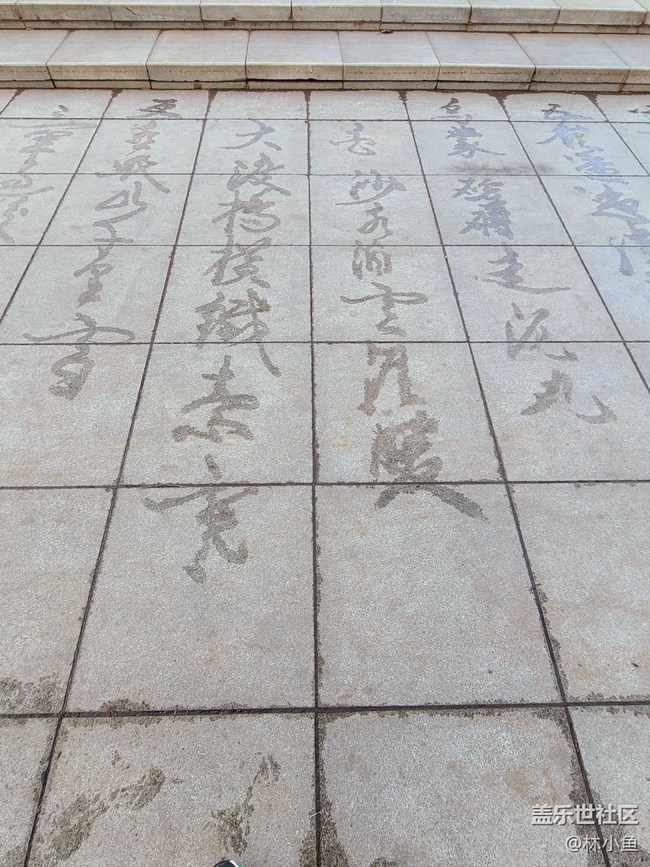 五岭逶迤腾
乌蒙磅礴走泥丸
金沙水拍云崖暖
大渡橋横鐵索寒
更喜岷山千里雪
三军过
盖乐世社区
@林小鱼